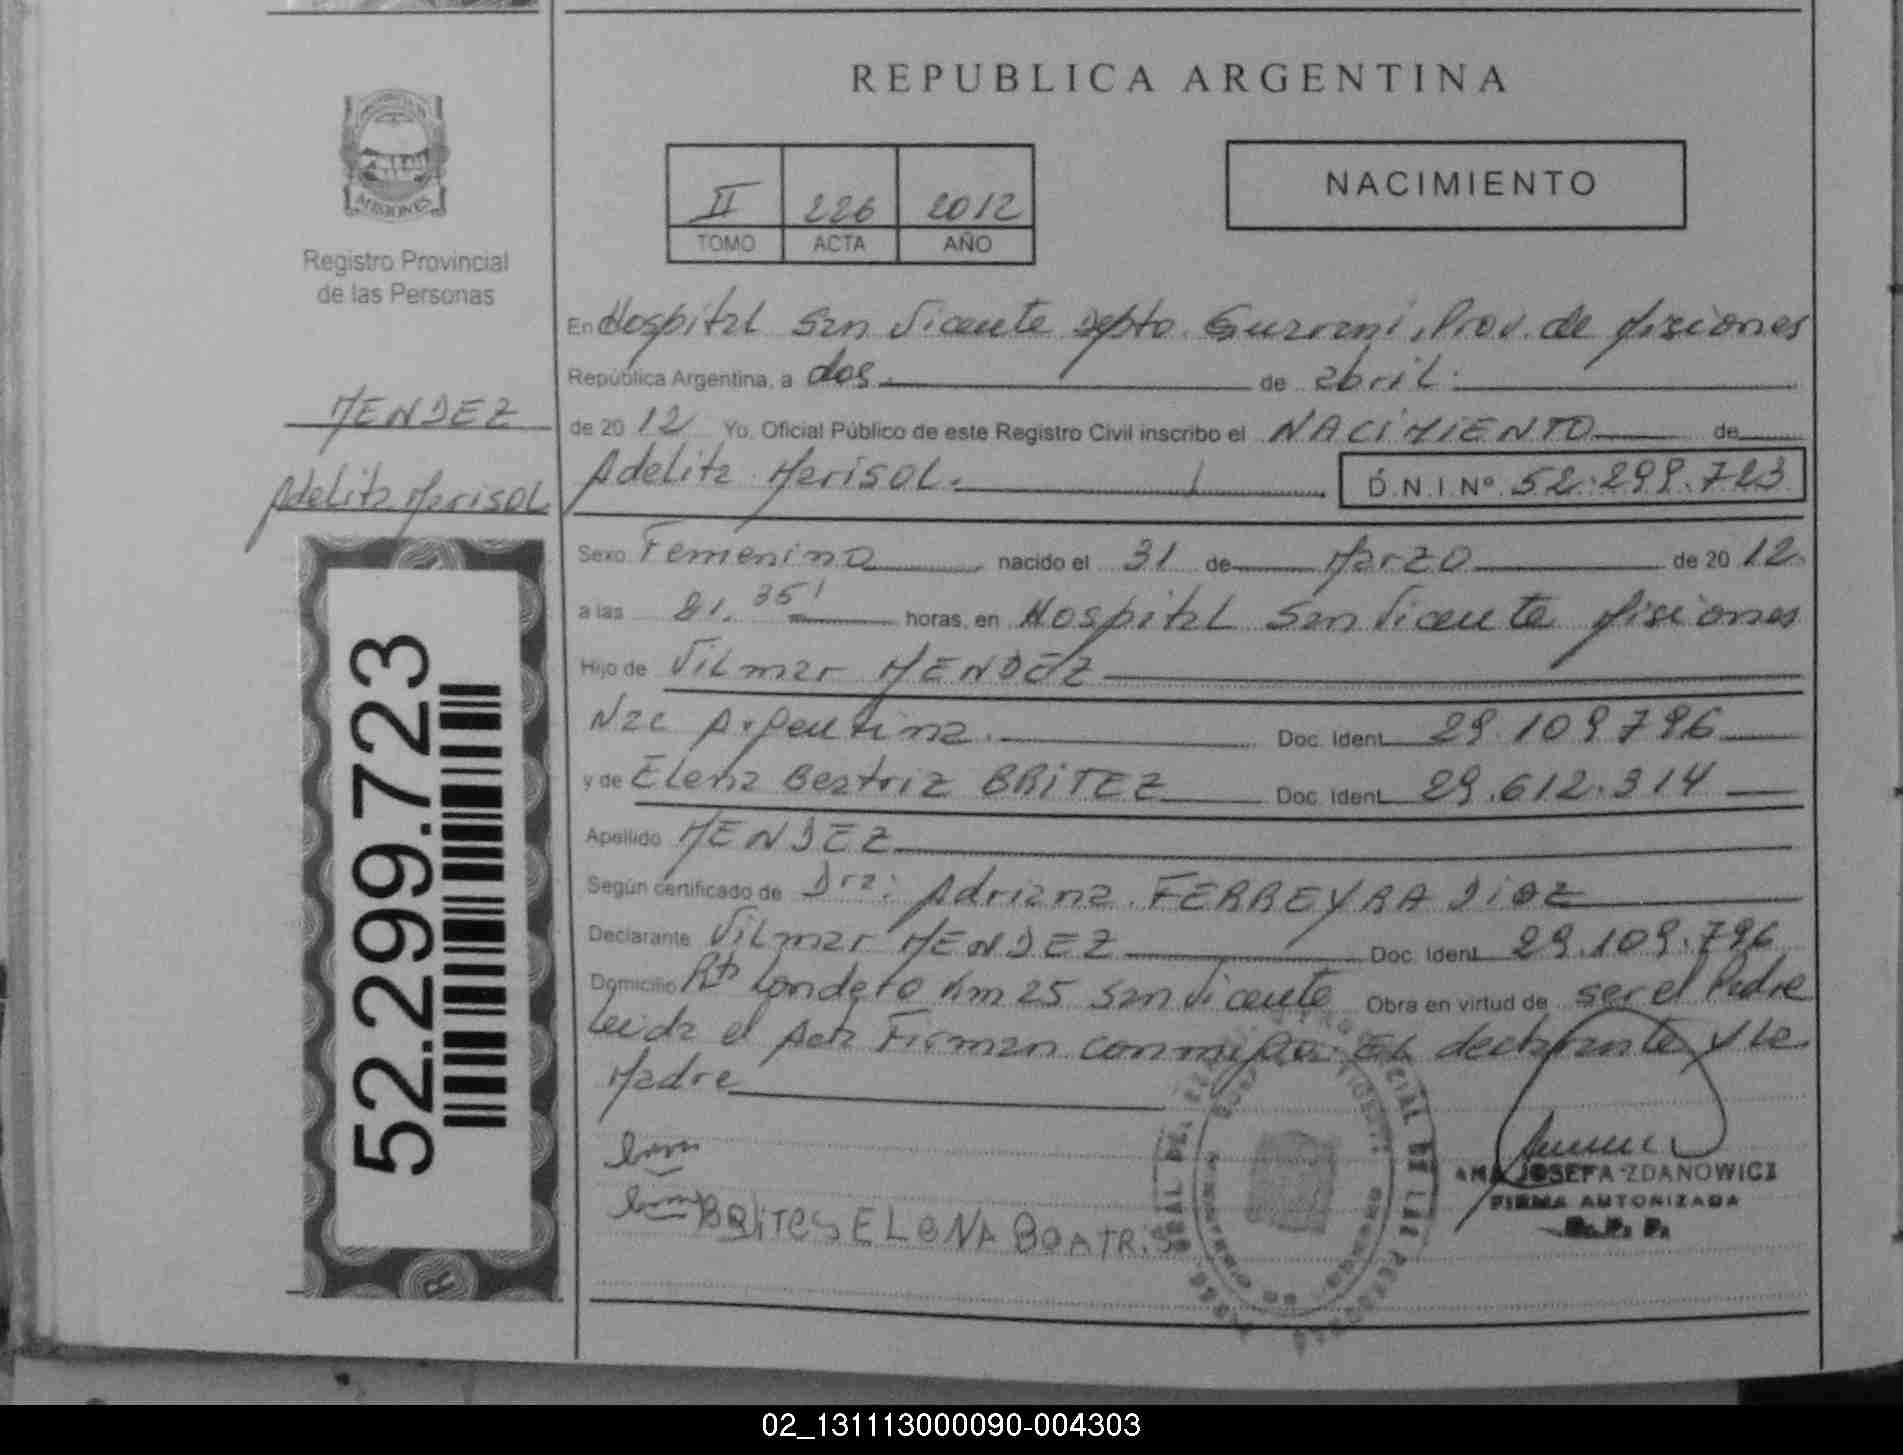 REPUBLICA ARGENTINA
MISIONES
Registro Provincial
de las Personas
II 226 2012
TOMO ACTA AÑO
NACIMIENTO
MENDEZ
Adelita Marisol
52.299.723
En Hospital San Vicente Depto. Guarani, Prov. de Misiones
República Argentina, a dos de abril
de 2012 Yo, Oficial Público de este Registro Civil inscribo el NACIMIENTO de
Adelita Marisol. D.N.I.Nº 52.299.723
Sexo Femenino nacido el 31 de Marzo de 2012
a las 21.35' horas, en Hospital San Vicente Misiones
Hijo de Vilmar MENDEZ
Nac Argentina. Doc. Ident. 29.109.796
y de Elena Beatriz BRITEZ Doc. Ident. 29.612.314
Apellido MENDEZ
Según certificado de Dra: Adriana FERREYRA DIAZ
Declarante Vilmar MENDEZ Doc. Ident. 29.109.796
Domicilio Londero Km 25 San Vicente Obra en virtud de ser el Padre
Leida el Acta Firman conmigo: EL declarante y la
Madre
BRITES ELENA BOATRIS
ANA JOSEFA ZDANOWICZ
FIRMA AUTORIZADA
R. P. P.
02_131113000090-004303